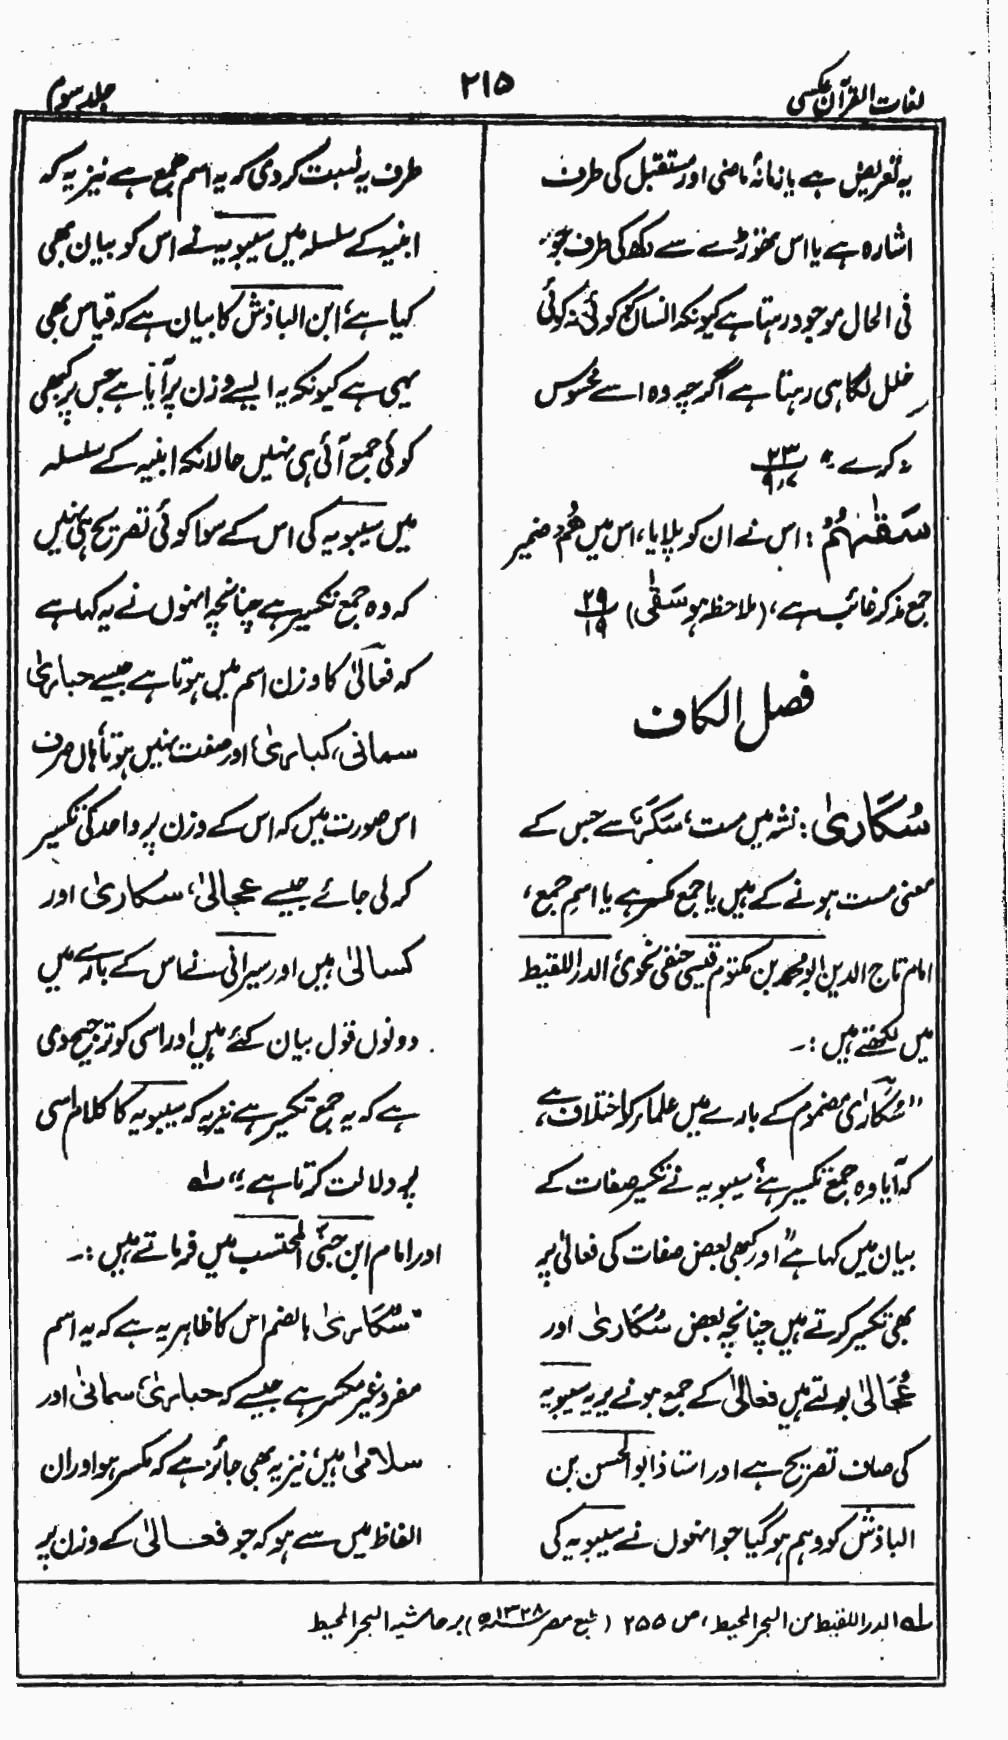 لغات القرآن عکسی
۲۱۵
جلد سوم
یہ تعریض ہے یا زمانۂ ماضی اور مستقبل کی طرف
اشارہ ہے یا اس تھوڑے سے دکھ کی طرف جو
فی الحال موجود رہتا ہے کیونکہ انسان کو کوئی نہ کوئی
خلل لگا ہی رہتا ہے اگرچہ وہ اسے محسوس
نہ کرے ۔ ۲۳
سَقٰہُمْ : اس نے ان کو پلایا، اس میں ھُمْ ضمیر
جمع مذکر غائب ہے، (ملاحظہ ہو سَقٰی) ۲۹/۱۹
فصل الکاف
سُکَارٰی : نشہ میں مست، سَکَرٌ سے جس کے
معنی مست ہونے کے ہیں یا جمع مکسر ہے یا اسمِ جمع،
امام تاج الدین ابو محمد بن مکتوم قیسی حنفی نحوی الدر اللقیط
میں لکھتے ہیں :۔
"سُکَارٰی مضموم کے بارے میں علماء کا اختلاف ہے،
کہ آیا وہ جمع تکسیر ہے؟ سیبویہ نے تکسیر صفات کے
بیان میں کہا ہے" اور کبھی بعض صفات کی فعالیٰ پر
بھی تکسیر کرتے ہیں چنانچہ بعض سُکَارٰی اور
عُجَالیٰ بولتے ہیں فعالیٰ کے جمع ہونے پر یہ سیبویہ
کی صاف تصریح ہے اور استاذ ابو الحسن بن
الباذش کو وہم ہو گیا جو انہوں نے سیبویہ کی
طرف یہ نسبت کر دی کہ یہ اسم جمع ہے نیز یہ کہ
ابنیہ کے سلسلہ میں سیبویہ نے اس کو بیان بھی
کیا ہے، ابن الباذش کا بیان ہے کہ قیاس بھی
یہی ہے کیونکہ یہ ایسے وزن پر آیا ہے جس پر کبھی
کوئی جمع آئی ہی نہیں حالانکہ ابنیہ کے سلسلہ
میں سیبویہ کی اس کے سوا کوئی تصریح ہی نہیں
کہ وہ جمع تکسیر ہے چنانچہ انہوں نے یہ کہا ہے
کہ فعالیٰ کا وزن اسم میں ہوتا ہے جیسے حباریٰ
سمانی، کباریٰ، اور صفت نہیں ہوتا، ہاں صرف
اس صورت میں کہ اس کے وزن پر واحد کی تکسیر
کر لی جائے جیسے عجالیٰ، سکاریٰ، اور
کسالیٰ ہیں اور سیرافی نے اس کے بارے میں
دونوں قول بیان کئے ہیں اور اسی کو ترجیح دی
ہے کہ یہ جمع تکسیر ہے نیز یہ کہ سیبویہ کا کلام اسی
پر دلالت کرتا ہے ؛" لہ
اور امام ابن جنی المحتسب میں فرماتے ہیں :۔
"سُکَاریٰ بالضم اس کا ظاہر یہ ہے کہ یہ اسم
مفرد غیر مکسر ہے جیسے کہ حباریٰ، سمانیٰ اور
سلامیٰ ہیں، نیز یہ بھی جائز ہے کہ مکسر ہو اور ان
الفاظ میں سے ہو کہ جو فعالیٰ کے وزن پر
لہ الدر اللقیط من البحر المحیط، ص ۲۵۵ (طبع مصر ۱۳۲۸ھ) بر حاشیہ البحر المحیط